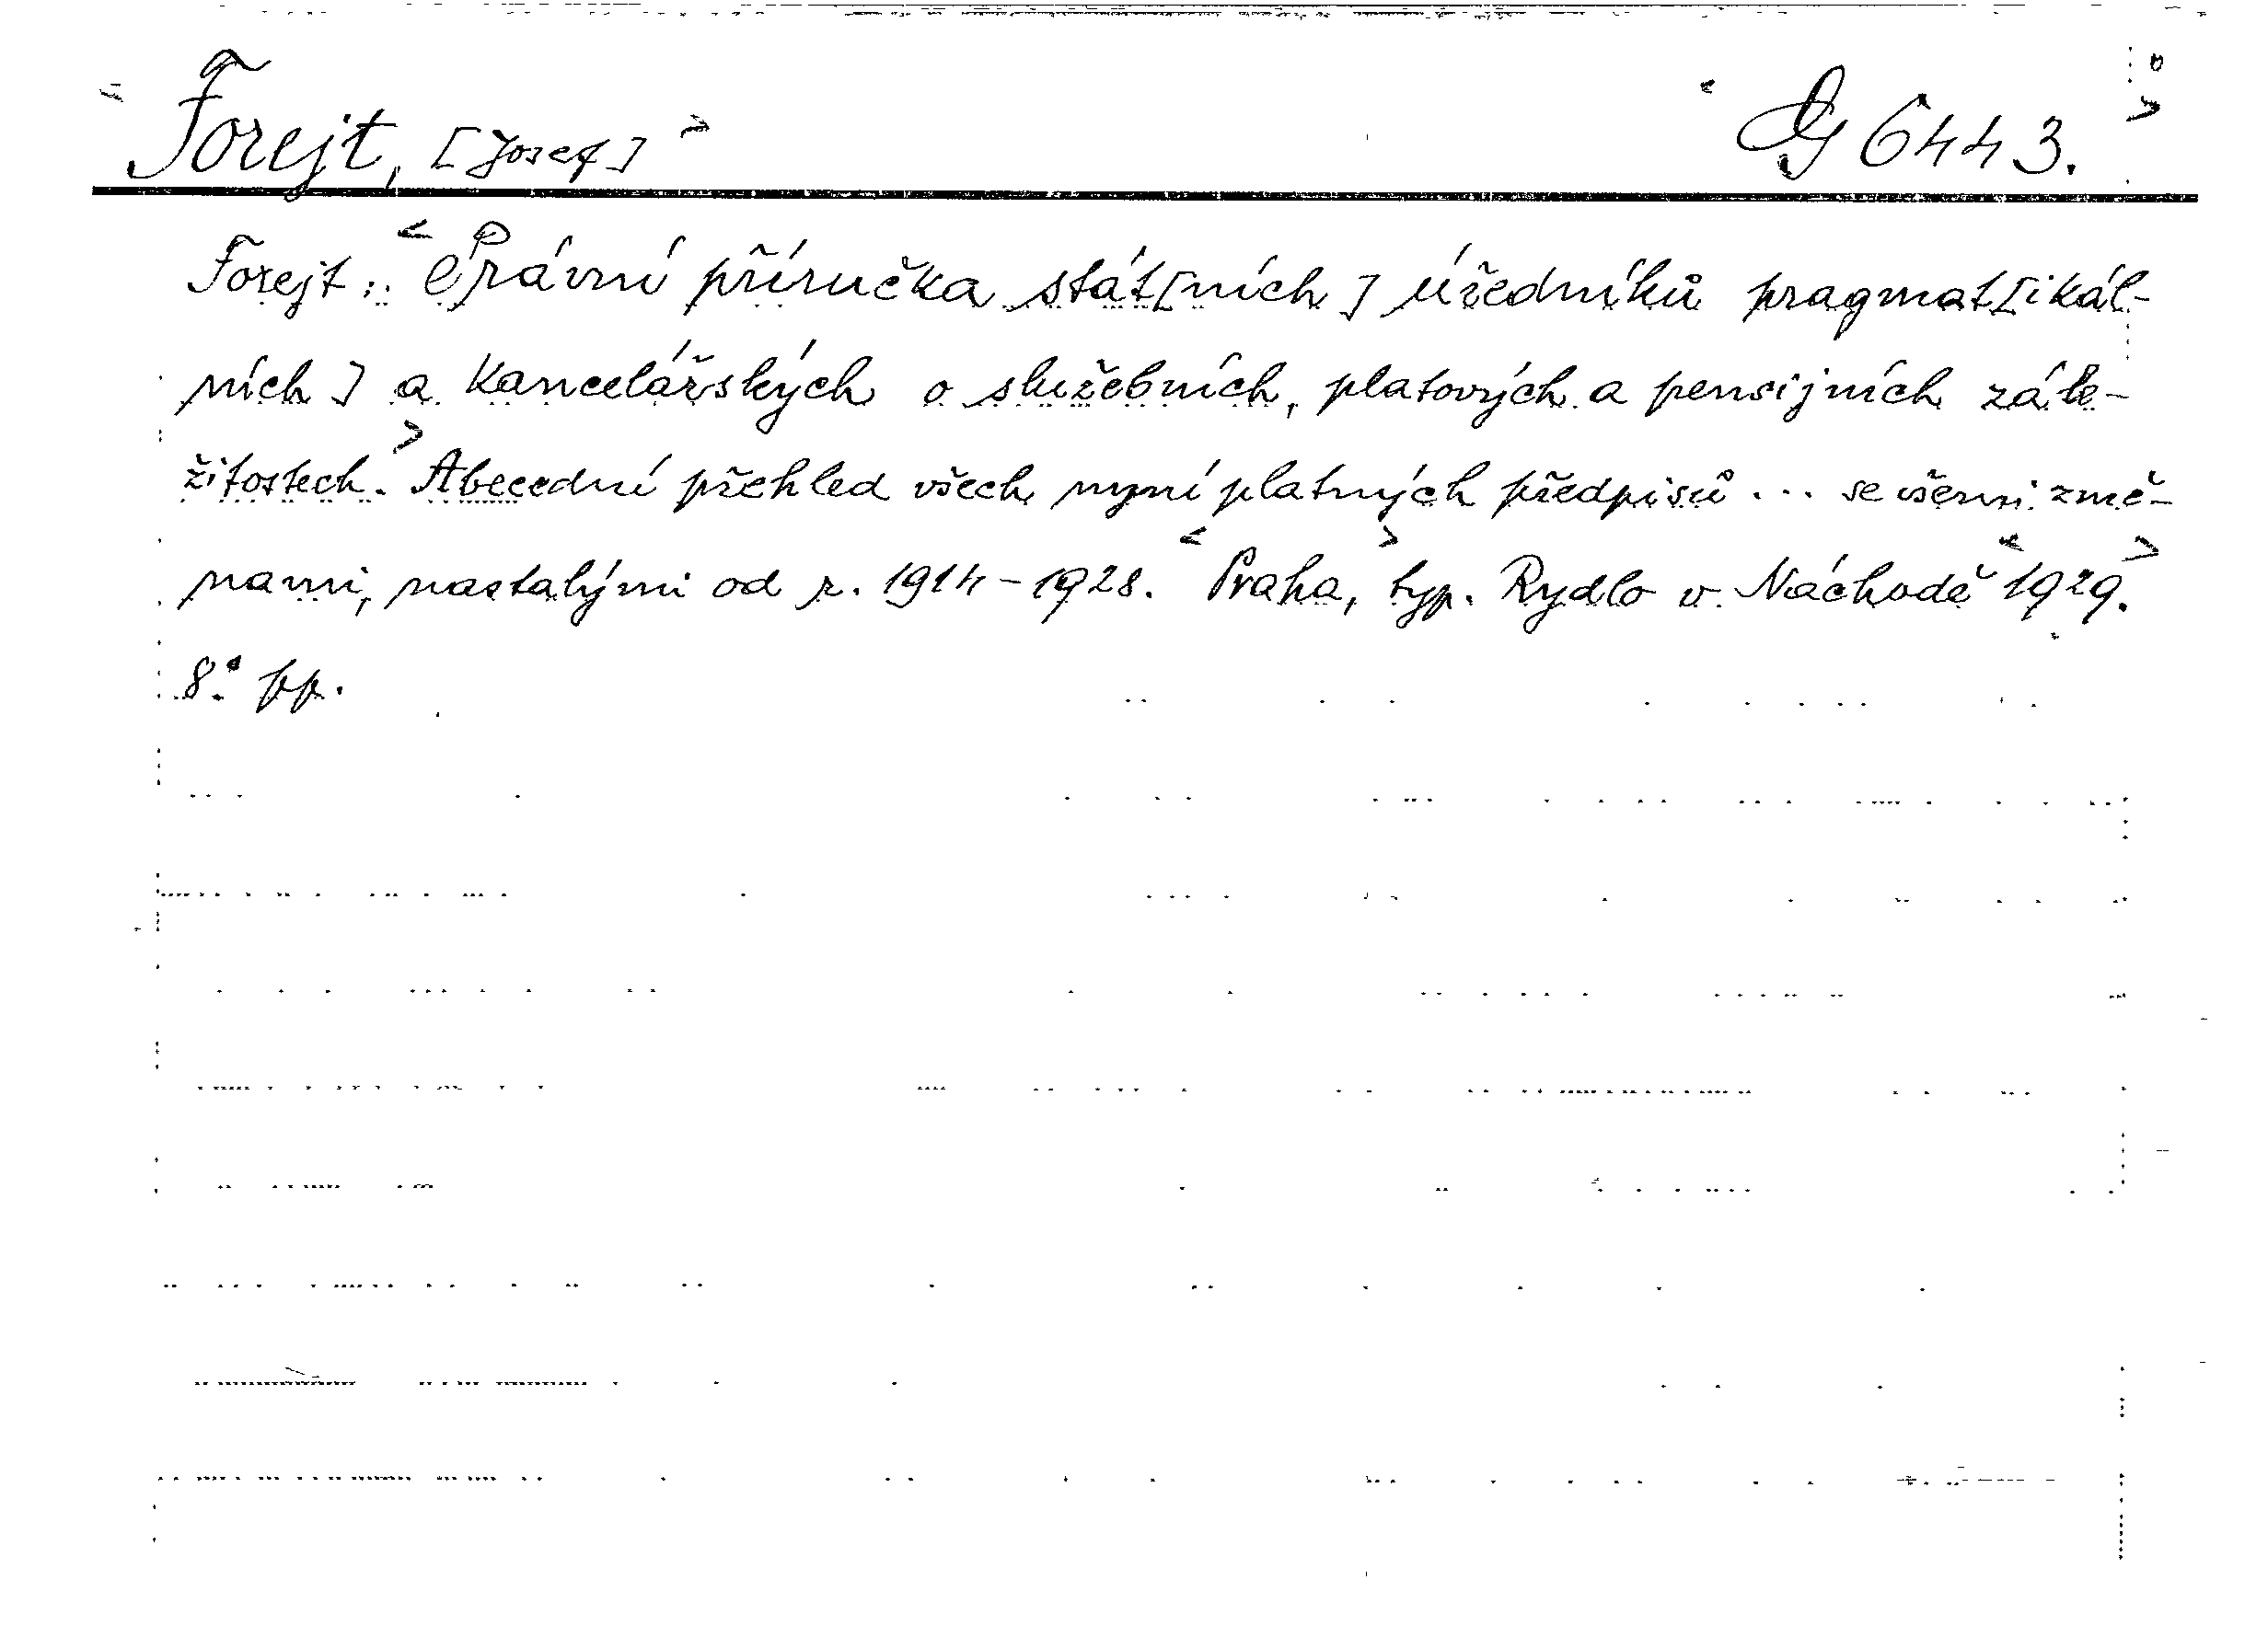 < Forejt, [Josef] > < Dg 6443. >
Forejt: < Právní příručka stát[ních] úředníků pragmat[ikál-
ních] a kancelářských o služebních, platových a pensijních zále-
žitostech. > Abecední přehled všech nyní platných předpisů ... se všemi změ-
nami, nastalými od r. 1914-1928. < Praha, > typ. Rydlo v Náchodě < 1929. >
8° pp.